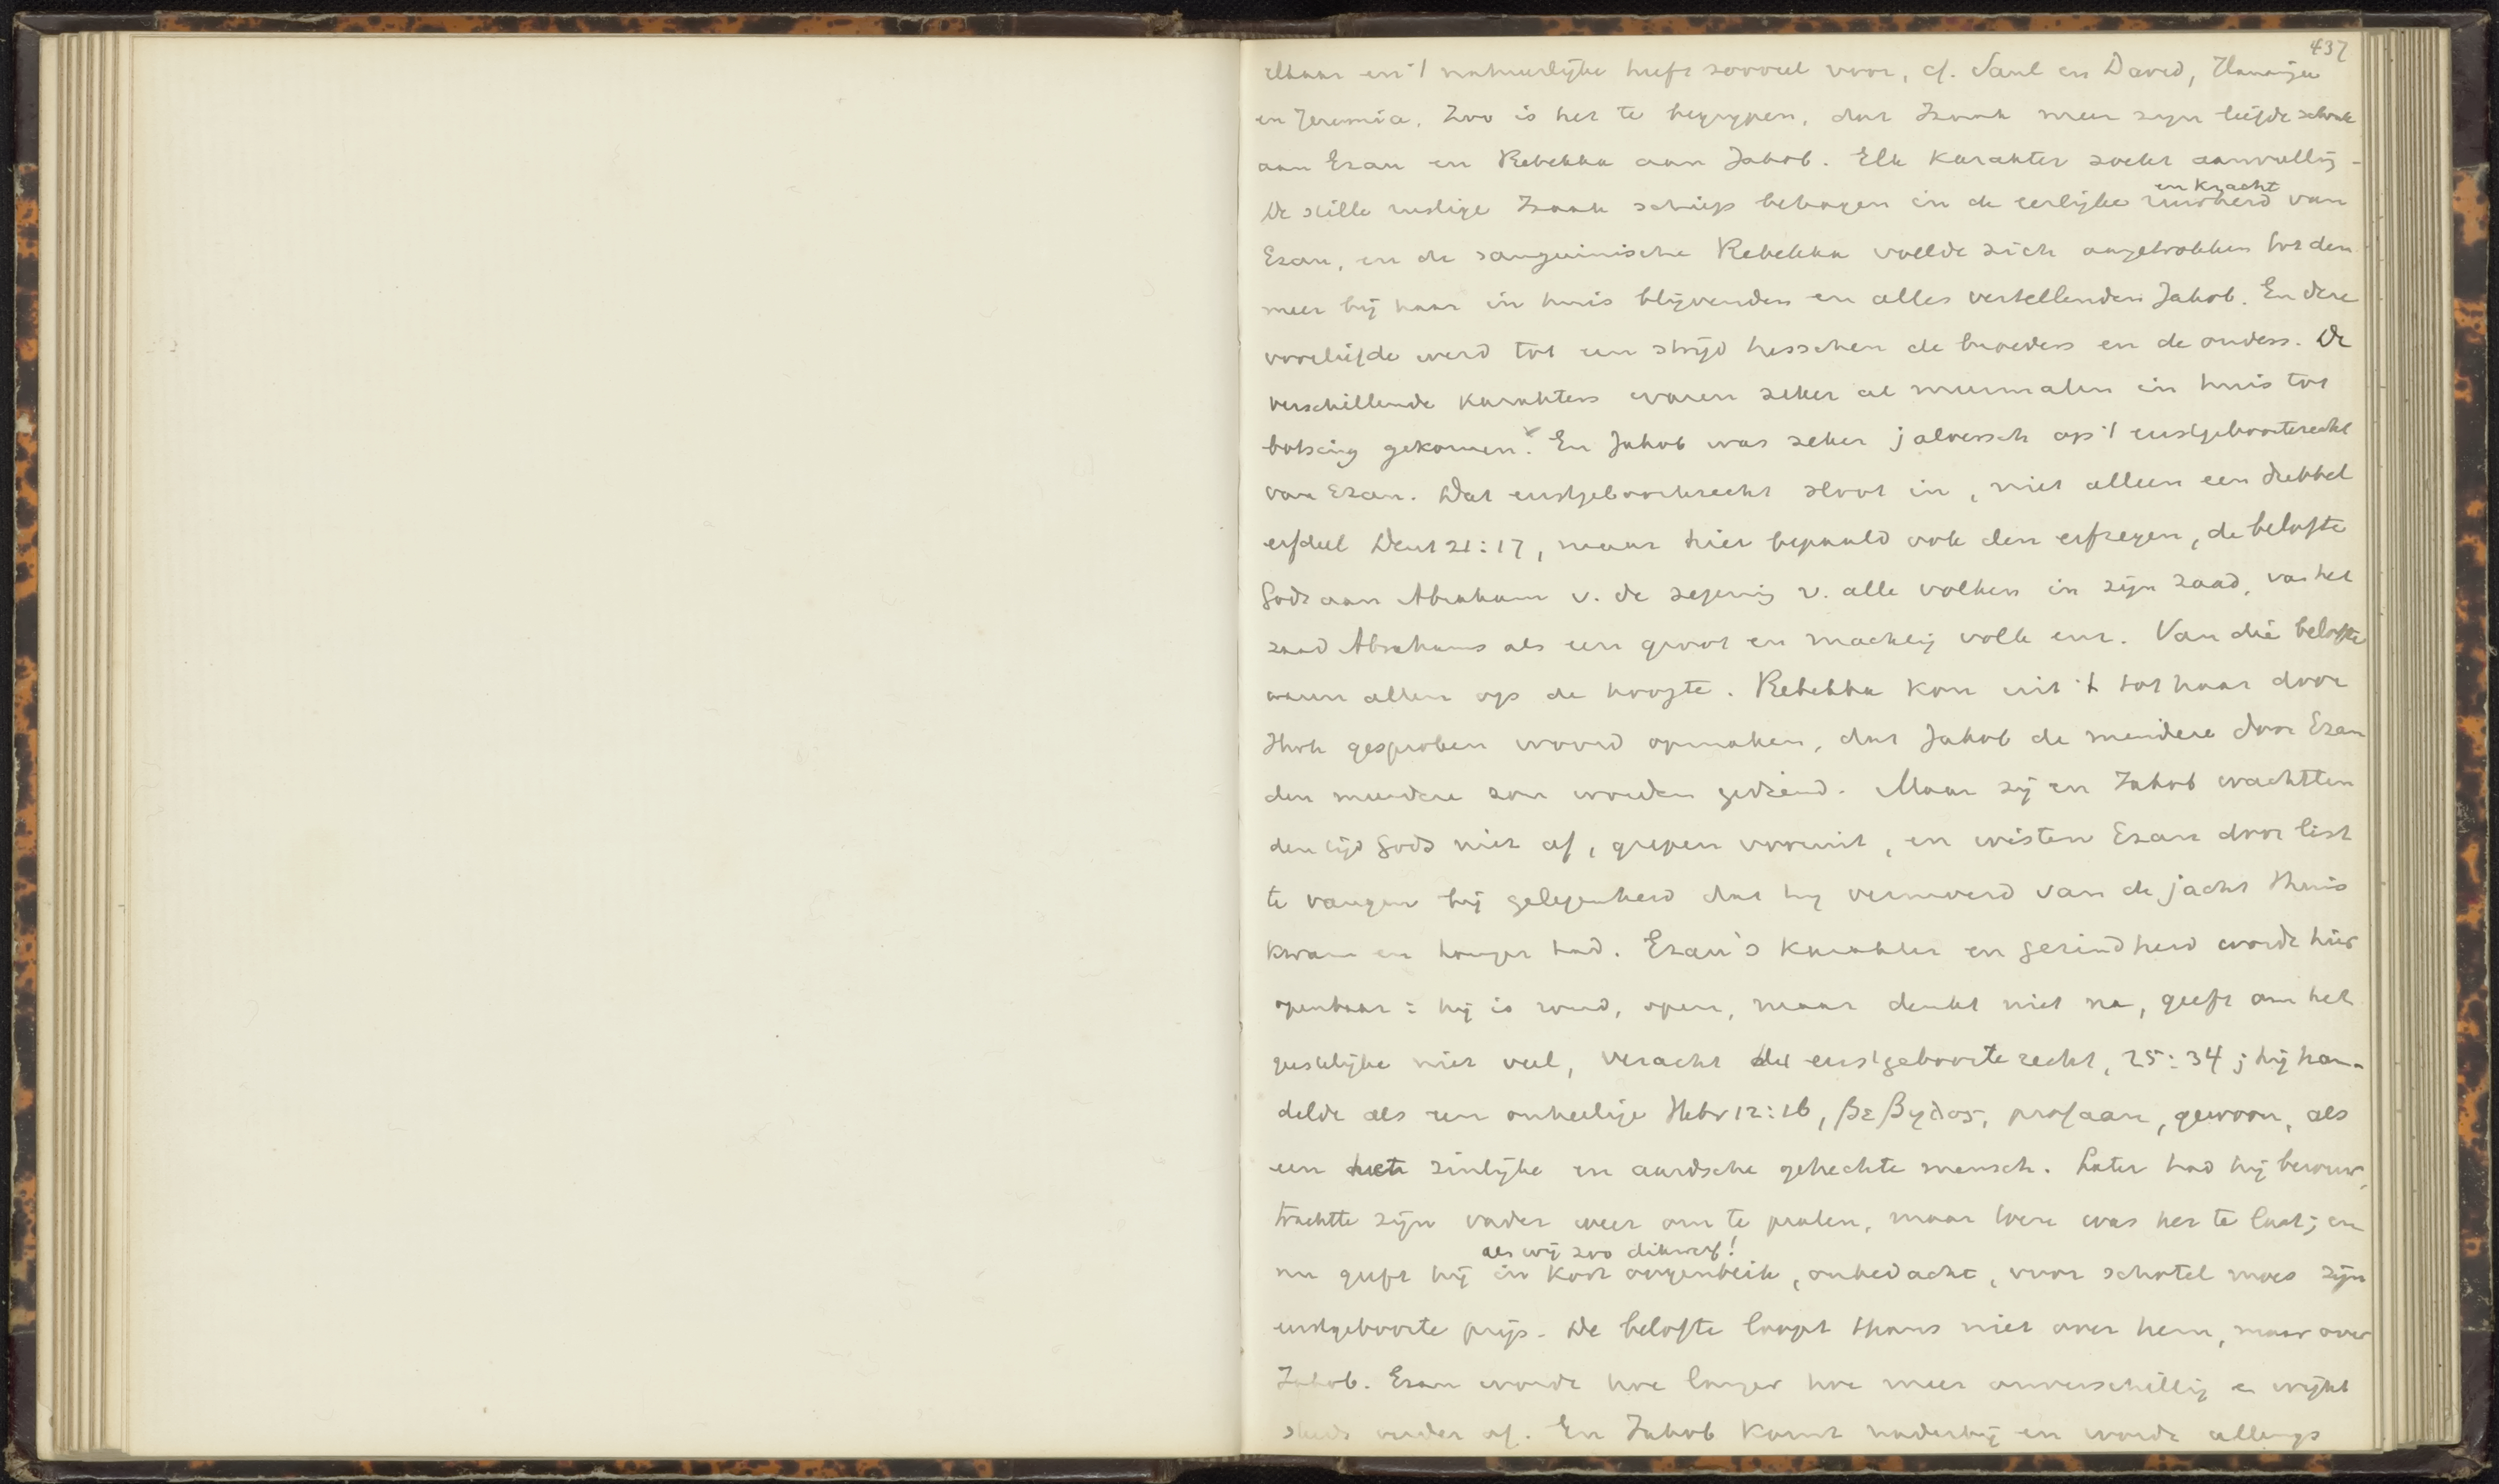 437
elkaar en 't natuurlijke heeft zooveel voor, cf. Saul en David, Hananja
en Jeremia. Zoo is het te begrijpen, dat Izaak meer zijn liefde schonk
aan Ezau en Rebekka aan Jakob. Elk karakter zoekt aanvulling.
De stille rustige Izaak schiep behagen in de eerlijke ruwheid en kracht van
Ezau, en de sanguinische Rebekka voelde zich aangetrokken tot den
meer bij haar in huis blijvenden en alles vertellenden Jakob. En deze
voorliefde werd tot een strijd tusschen de broeders en de ouders. De
verschillende karakters waren zeker al meermalen in huis tot
botsing gekomen. En Jakob was zeker jaloersch op 't eerstgeboorterecht
van Ezau. Dat eerstgeboorterecht sloot in, niet alleen een dubbel
erfdeel Deut 21:17, maar hier bepaald ook den erfzegen, de belofte
Gods aan Abraham v. de zegening v. alle volken in zijn zaad, van het
zaad Abrahams als een groot en machtig volk enz. Van die belofte
waren allen op de hoogte. Rebekka kon uit 't tot haar door
Jhvh gesproken woord opmaken, dat Jakob de mindere door Ezau
den meerdere zou worden gediend. Maar zij en Jakob wachtten
den tijd Gods niet af, grepen vooruit, en wisten Ezau door list
te vangen bij gelegenheid dat hij vermoeid van de jacht thuis
kwam en honger had. Ezau's karakter en gezindheid wordt hier
openbaar: hij is rond, open, maar denkt niet na, geeft om het
geestelijke niet veel, veracht het eerstgeboorterecht, 25:34; hij han-
delde als een onheilige Hebr 12:16, βεβηλος, profaan, gewoon, als
een zinlijke en aardsche gehechte mensch. Later had hij berouw,
trachtte zijn vader weer om te praten, maar toen was het te laat; en
als wij zoo dikwerf!
nu geeft hij in kort oogenblik, onbedacht, voor schotel moes zijn
eerstgeboorte prijs. De belofte loopt thans niet over hem, maar over
Jakob. Ezau wordt hoe langer hoe meer onverschillig en wijkt
steeds verder af. En Jakob komt naderbij en wordt allengs